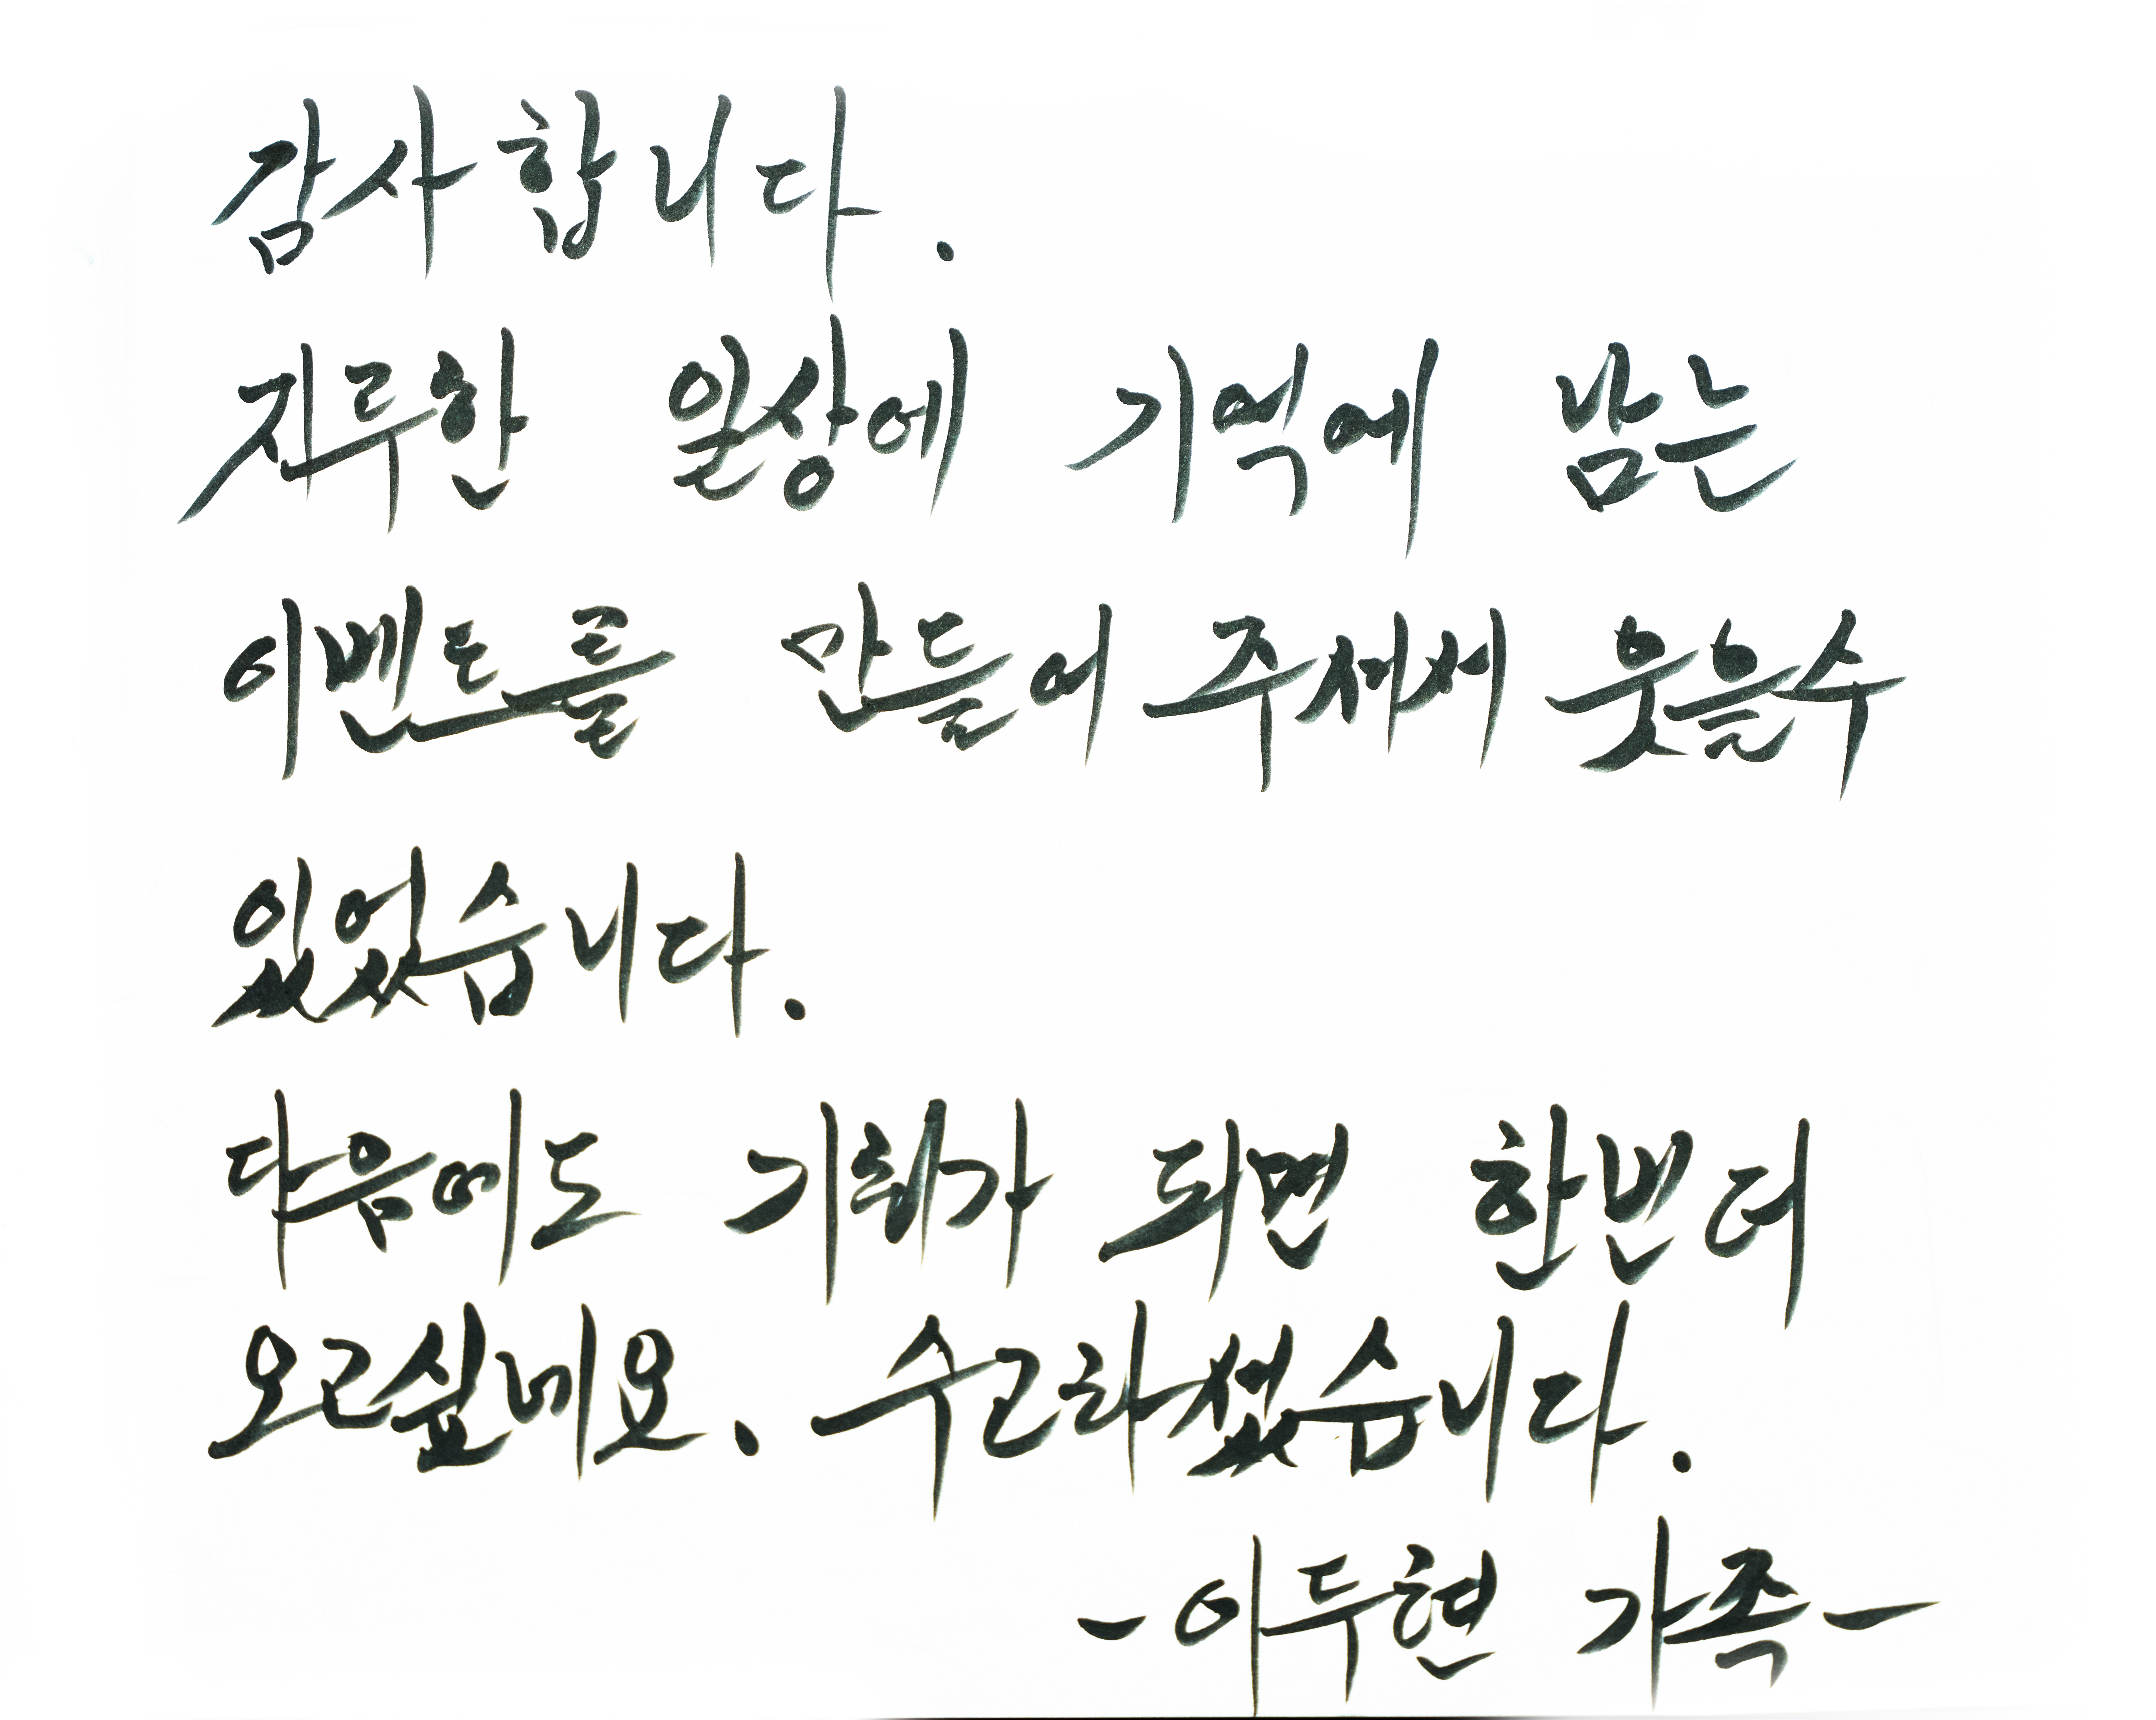 감사합니다.
지루한 일상에 기억에 남는
이벤트를 만들어 주셔서 웃을수
있었습니다.
다음에도 기회가 되면 한번더
오고싶네요. 수고하셨습니다.
-이두현 가족-